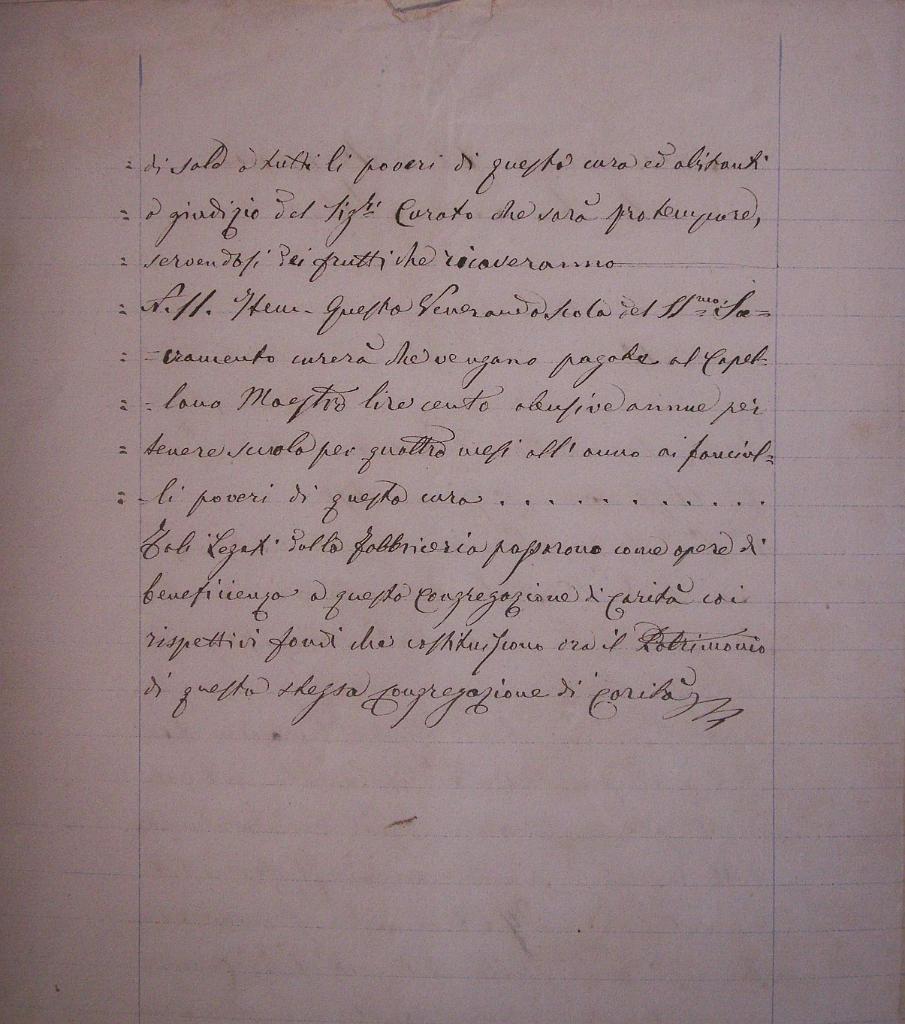 = di sale a tutti li poveri di questa cura ed abitanti
= a giudizio del Sig.r Curato che sarà pro tempore,
= servendosi dei frutti che ricaveranno
= N. 11. Item. Questa Veneranda Scola del SS.mo Sa=
= =cramento curerà che vengano pagate al Capel=
= =lano Maestro lire cento abusive annue per
= tenere scuola per quattro mesi all'anno ai fanciul=
= =li poveri di questa cura . . . . . . . . . . . .
Tali Legati dalla Fabbriceria passarono come opere di
beneficienza a questa Congregazione di Carità coi
rispettivi fondi che costituiscono ora il Patrimonio
di questa stessa Congregazione di Carità